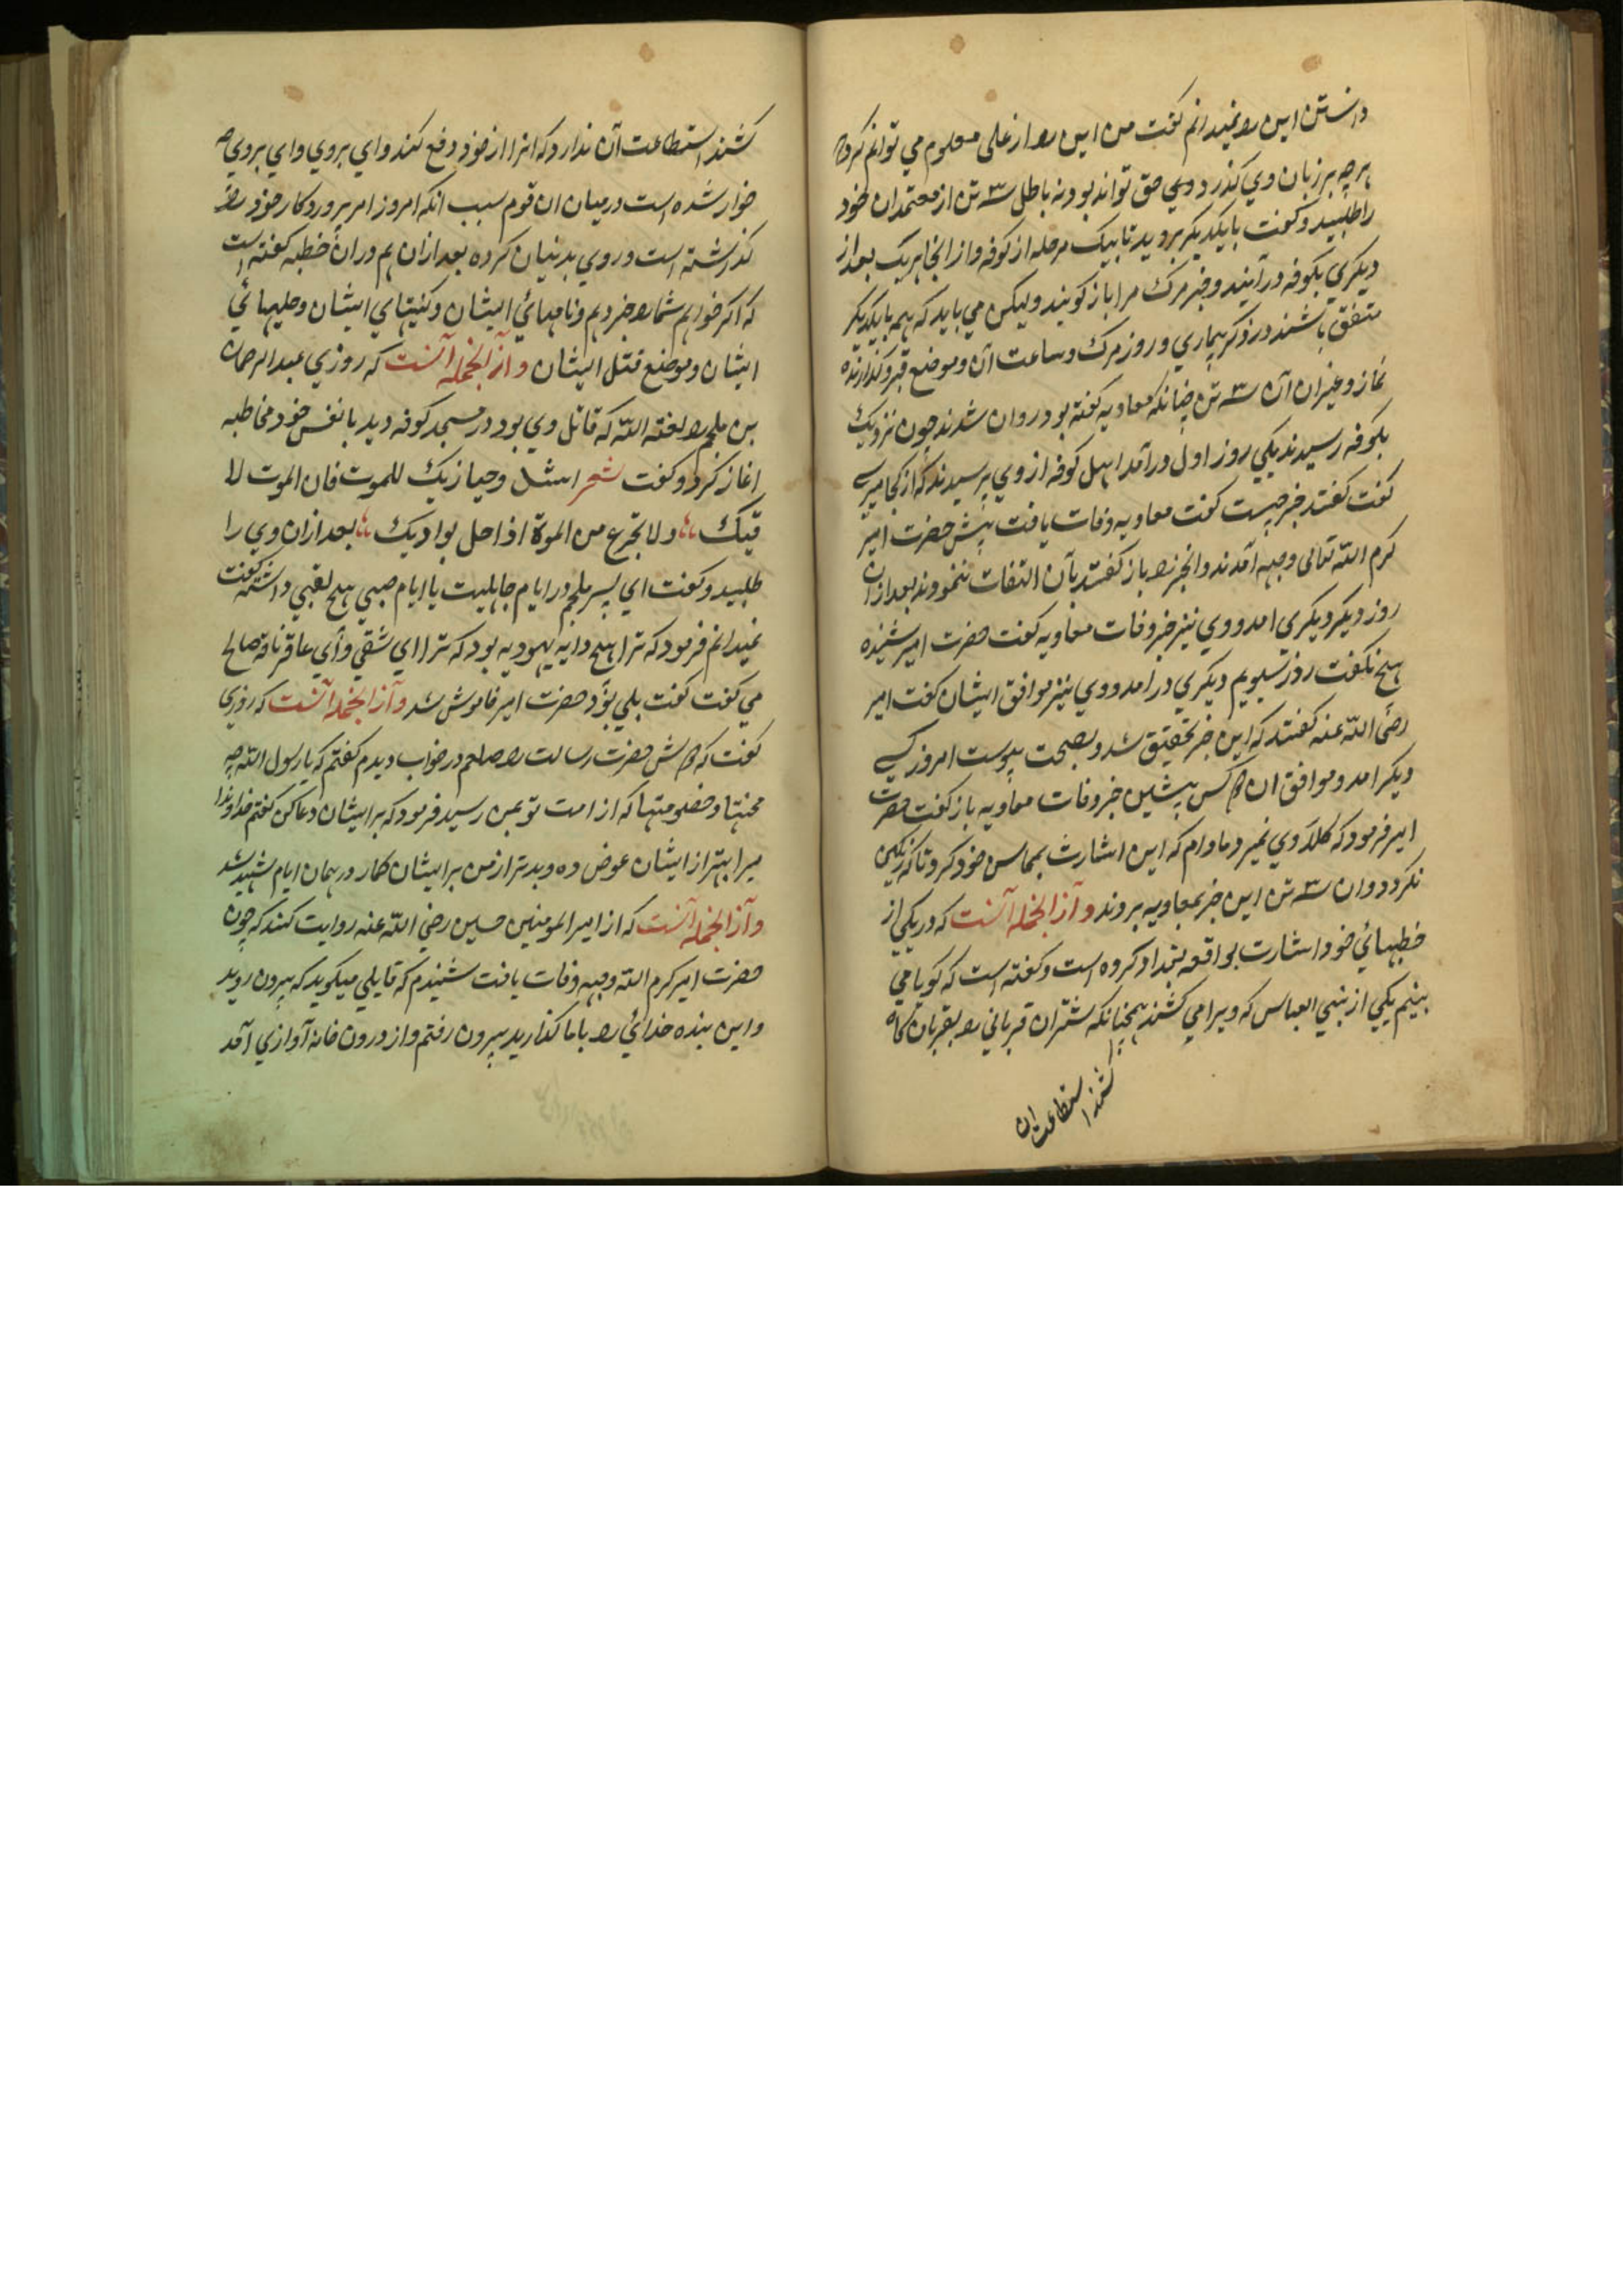 دانستن این را نمیدانم گفت من این را از علی معلوم می توانم کرد که
هر چه بر زبان وی گذرد وی حق تواند بود نه باطل سه تن از معتمدان خود
را طلبید و گفت بایکدیگر بروید تا بیک مرحله از کوفه و از انجا هر یک بعد از
دیگری بکوفه در آیند و خبر مرگ مرا باز گویند ولیکن می باید که همه بایکدیگر
متفق باشند در ذکر بیماری و روز مرگ و ساعت آن و موضع قبر و گذارنده
نماز و غیر ان آن سه تن چنانکه معاویه گفته بود روان شدند چون نزدیک
بکوفه رسیدند یکی روز اول در آمد اهل کوفه از وی پرسیدند که از کجا میرسی
گفت گفتند خبر چیست گفت معاویه وفات یافت پیش حضرت امیر
کرم الله تعالی وجهه آمدند و انخبر را باز گفتند بآن التفات ننمودند بعد ازان
روز دیگر دیگری امد و وی نیز خبر وفات معاویه گفت حضرت امیر شنیده
هیچ نگفت روز سیویم دیگری در امد و وی نیز موافق ایشان گفت امیر
رضی الله عنه گفتند که این خبر تحقیق شد و بصحت پیوست امروز کسی
دیگر امد و موافق ان دو کس پیشین خبر وفات معاویه باز گفت حضرت
امیر فرمود که کلا وی نمیرد مادام که این اشارت بمحاسن خود کرد تا که رنگین
نکردد وان سه تن این خبر بمعاویه بروند و آز انجمله آنست که در یکی از
خطبهائی خود اشارت بواقعه بغداد کرده است و گفته است که گویا می
بینم یکی از بنی العباس که ویرا می کشند همچنانکه شتران قربانی را بقربان گاه
کشند استطاعت ان
کشند استطاعت آن ندارد که انرا از خود دفع کند و ای بر وی و ای بر وی چه
خوار شده است در میان ان قوم سبب انکه امروز امر پروردکار خود را
گذاشته است و روی بدنیان کرده بعد ازان هم در ان خطبه گفته است
که اگر خواهم شما را خبر دهم و نامهائی ایشان و کنیتای ایشان و حلیهائی
ایشان و موضع قتل ایشان و آز انجمله آنست که روزی عبد الرحمان
بن ملجم را لعنه الله که قاتل وی بود در مسجد کوفه دید با نفس خود مخاطبه
اغاز کرد و گفت شعر اشدد وحیازیک للموت فان الموت لا
قیک ولا تجرع من الموة اذا حل بوادیک بعد ازان وی را
طلبید و گفت ای پسر ملجم در ایام جاهلیت یا ایام صبی هیچ لقبی داشتی گفت
نمیدانم فرمود که ترا هیچ دایه یهودیه بود که ترا ای شقی و ای عاقر ناقه صالح
می گفت گفت بلی بود حضرت امیر خاموش شد و آز انجمله آنست که روزی
گفت که دوش حضرت رسالت را صلعم در خواب دیدم گفتم که یا رسول الله چه
محنتها و خصومتها که از امت تو بمن رسید فرمود که بر ایشان دعا کن گفتم خداوندا
مرا بهتر از ایشان عوض ده و بدتر از من بر ایشان کمار در همان ایام شهید شد
و آز انجمله آنست که از امیر المومنین حسین رضی الله عنه روایت کنند که چون
حضرت امیر کرم الله وجهه وفات یافت شنیدم که قایلی میگوید که بیرون روید
و این بنده خدائی را باما گذارید بیرون رفتم و از درون خانه آوازی آمد